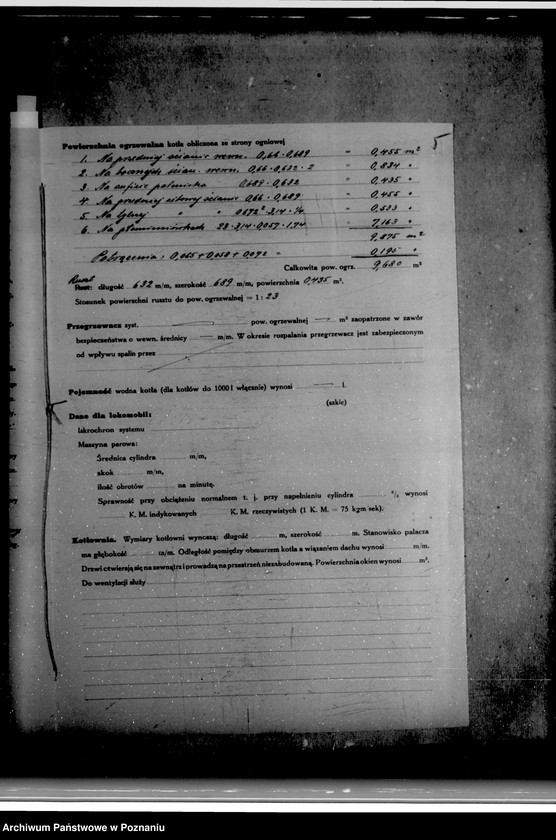 5
Powierzchnia ogrzewalna kotła obliczona ze strony ogniowej
1. Na przedniej ścianie wewn. 0,66 · 0,689 = 0,455 m²
2. Na bocznych ścian. wewn. 0,66 · 0,632 · 2 " 0,834 "
3. Na suficie paleniska 0,689 · 0,632 " 0,435 "
4. Na przedniej sitowej ścianie 0,66 · 0,689 " 0,455 "
5. Na tylnej " " 0,672² · 3,14 · ¼ " 0,533 "
6. Na płomieniówkach 23 · 3,14 · 0,057 · 1,74 " 7,163 "
9,875 m²
Potrącenia: 0,065 + 0,058 + 0,072 = 0,195 "
Całkowita pow. ogrz. 9,680 m²
Ruszt
Ruszt: długość 632 m/m, szerokość 689 m/m, powierzchnia 0,435 m².
Stosunek powierzchni rusztu do pow. ogrzewalnej = 1 : 23
Przegrzewacz syst. pow. ogrzewalnej — m² zaopatrzone w zawór
bezpieczeństwa o wewn. średnicy — m/m. W okresie rozpalania przegrzewacz jest zabezpieczonym
od wpływu spalin przez
Pojemność wodna kotła (dla kotłów do 1000 l włącznie) wynosi — l.
(szkic)
Dane dla lokomobil:
Iskrochron systemu
Maszyna parowa:
Średnica cylindra m/m,
skok m/m,
ilość obrotów na minutę.
Sprawność przy obciążeniu normalnem t. j. przy napełnieniu cylindra % wynosi
K. M. indykowanych K. M. rzeczywistych (1 K. M. = 75 kgm/sek).
Kotłownia. Wymiary kotłowni wynoszą: długość m, szerokość m. Stanowisko palacza
ma głębokość m/m. Odległość pomiędzy obmurzem kotła a wiązaniem dachu wynosi m/m.
Drzwi otwierają się na zewnątrz i prowadzą na przestrzeń niezabudowaną. Powierzchnia okien wynosi m².
Do wentylacji służy
Archiwum Państwowe w Poznaniu